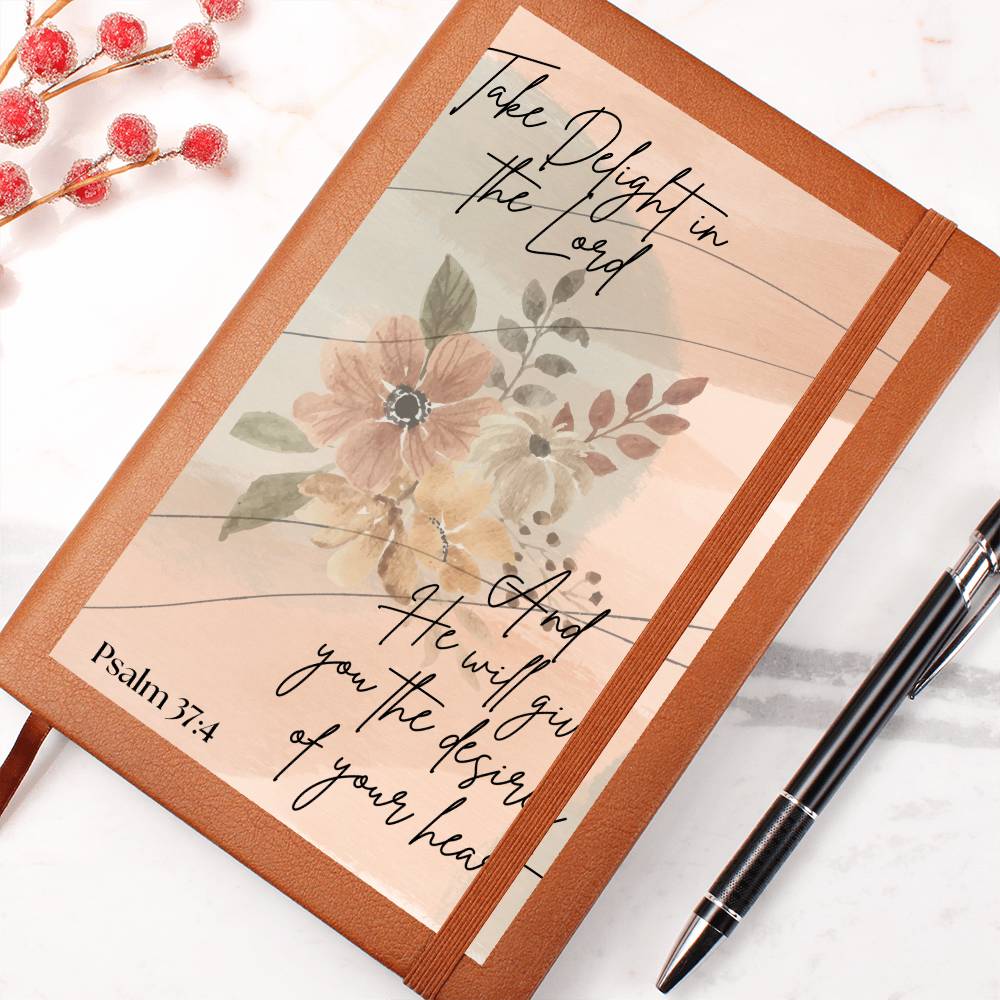 Take Delight in
the Lord
And
He will giv
you the desire
of your hear
Psalm 37:4